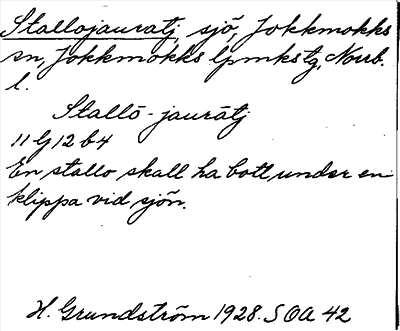 Stallojauratj, sjö, Jokkmokks
sn, Jokkmokks lpmkstg, Norrb.
l.
Stallō-jaurātj
11 G 12 b 4
En stallo skall ha bott under en
klippa vid sjön.
H. Grundström 1928. SOA 42